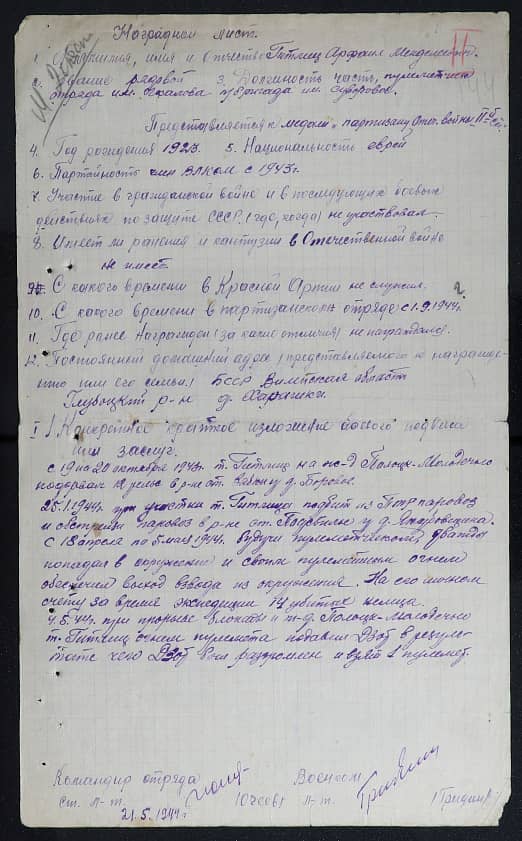 Наградной лист.
1. Фамилия, имя и Отчество Гитлиц Менделевич.
2. Звание рядовой 3. Должность, часть, пулеметчик
отряда им. Чкалова бригада им. Суворова.
Представляется к медали „партизану Отеч. войны" II ст.
4. Год рождения 1923. 5. Национальность еврей
6. Партийность член ВЛКСМ с 1943 г.
7. Участие в гражданской войне и в последующих боевых
действиях по защите СССР (где, когда) не участвовал.
8. Имеет ли ранения и контузии в Отечественной войне
не имеет
9. С какого времени в Красной Армии не служил.
10. С какого времени в партизанском отряде с 1.9.
11. Где ранее награжден (за какие отличия) не награждался.
12. Постоянный домашний адрес (представляемого к награжде-
нию или его семьи) БССР Вилейская область
Глубоцкий р-н д.
I Конкретное краткое изложение боевого подвига
или заслуг.
С 19 на 20 октября 1943 г. т. Гитлиц на ж-д Полоцк-Молодечно
подорвал рельс в р-не ст. у д.
25.1.1944 г. при участии т. Гитлица подбит из ПТР паровоз
и обстрелян паровоз в р-не ст. у д.
С 18 апреля по 5 мая 1944 г. будучи пулеметчиком, дважды
попадал в окружение и своим пулеметным огнем
обеспечил выход взвода из окружения. На его личном
счету за время экспедиции 14 убитых немца.
4.5.44 г. при прорыве блокады и ж-д. Полоцк-Молодечно
т. Гитлиц огнем пулемета подавил ДЗОТ в резуль-
тате чего ДЗОТ был разгромлен и взят 1 пулемет.
Командир отряда Военком
ст. л-т. л-т.
21.5.1944 г.